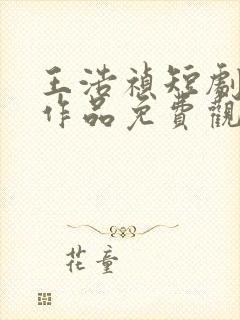 王浩禎短劇
作品免費觀
花童